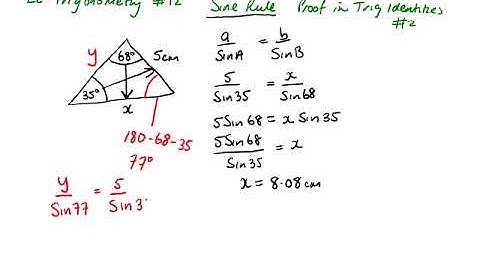 LC Trigonometry #12 Sine Rule Proof in Trig Identities #2
y 68° 5cm
35°
x
180-68-35
77°
a/SinA = b/SinB
5/Sin35 = x/Sin68
5Sin68 = x Sin35
5Sin68/Sin35 = x
x = 8.08cm
y/Sin77 = 5/Sin3